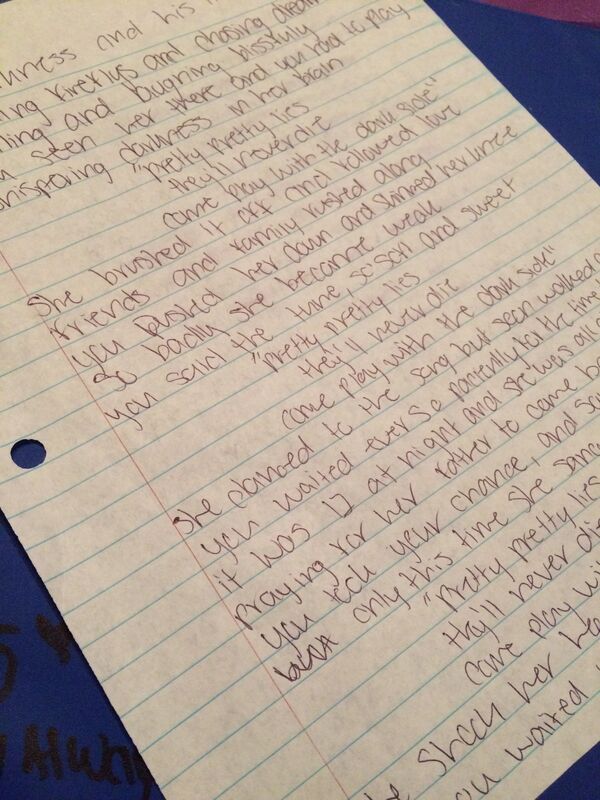 and his
fireflys and chasing dream
and laughing blissfully
seen her there and you had to play
whispering darkness in her brain
"pretty pretty lies
they'll never die
come play with the dark side"
She brushed it off and followed love
friends and family rushed along
you busted her down and skinned her knee
so badly she became weak
you said the tune, so soft and sweet
"pretty pretty lies
they'll never die
come play with the dark side"
She danced to the song but soon walked
you waited ever so patiently for the time
it was 12 at night and she was all
praying for her father to come
you took your chance, and
only this time she sang
"pretty pretty lies
they'll never die
come play
shook her
you waited
Always